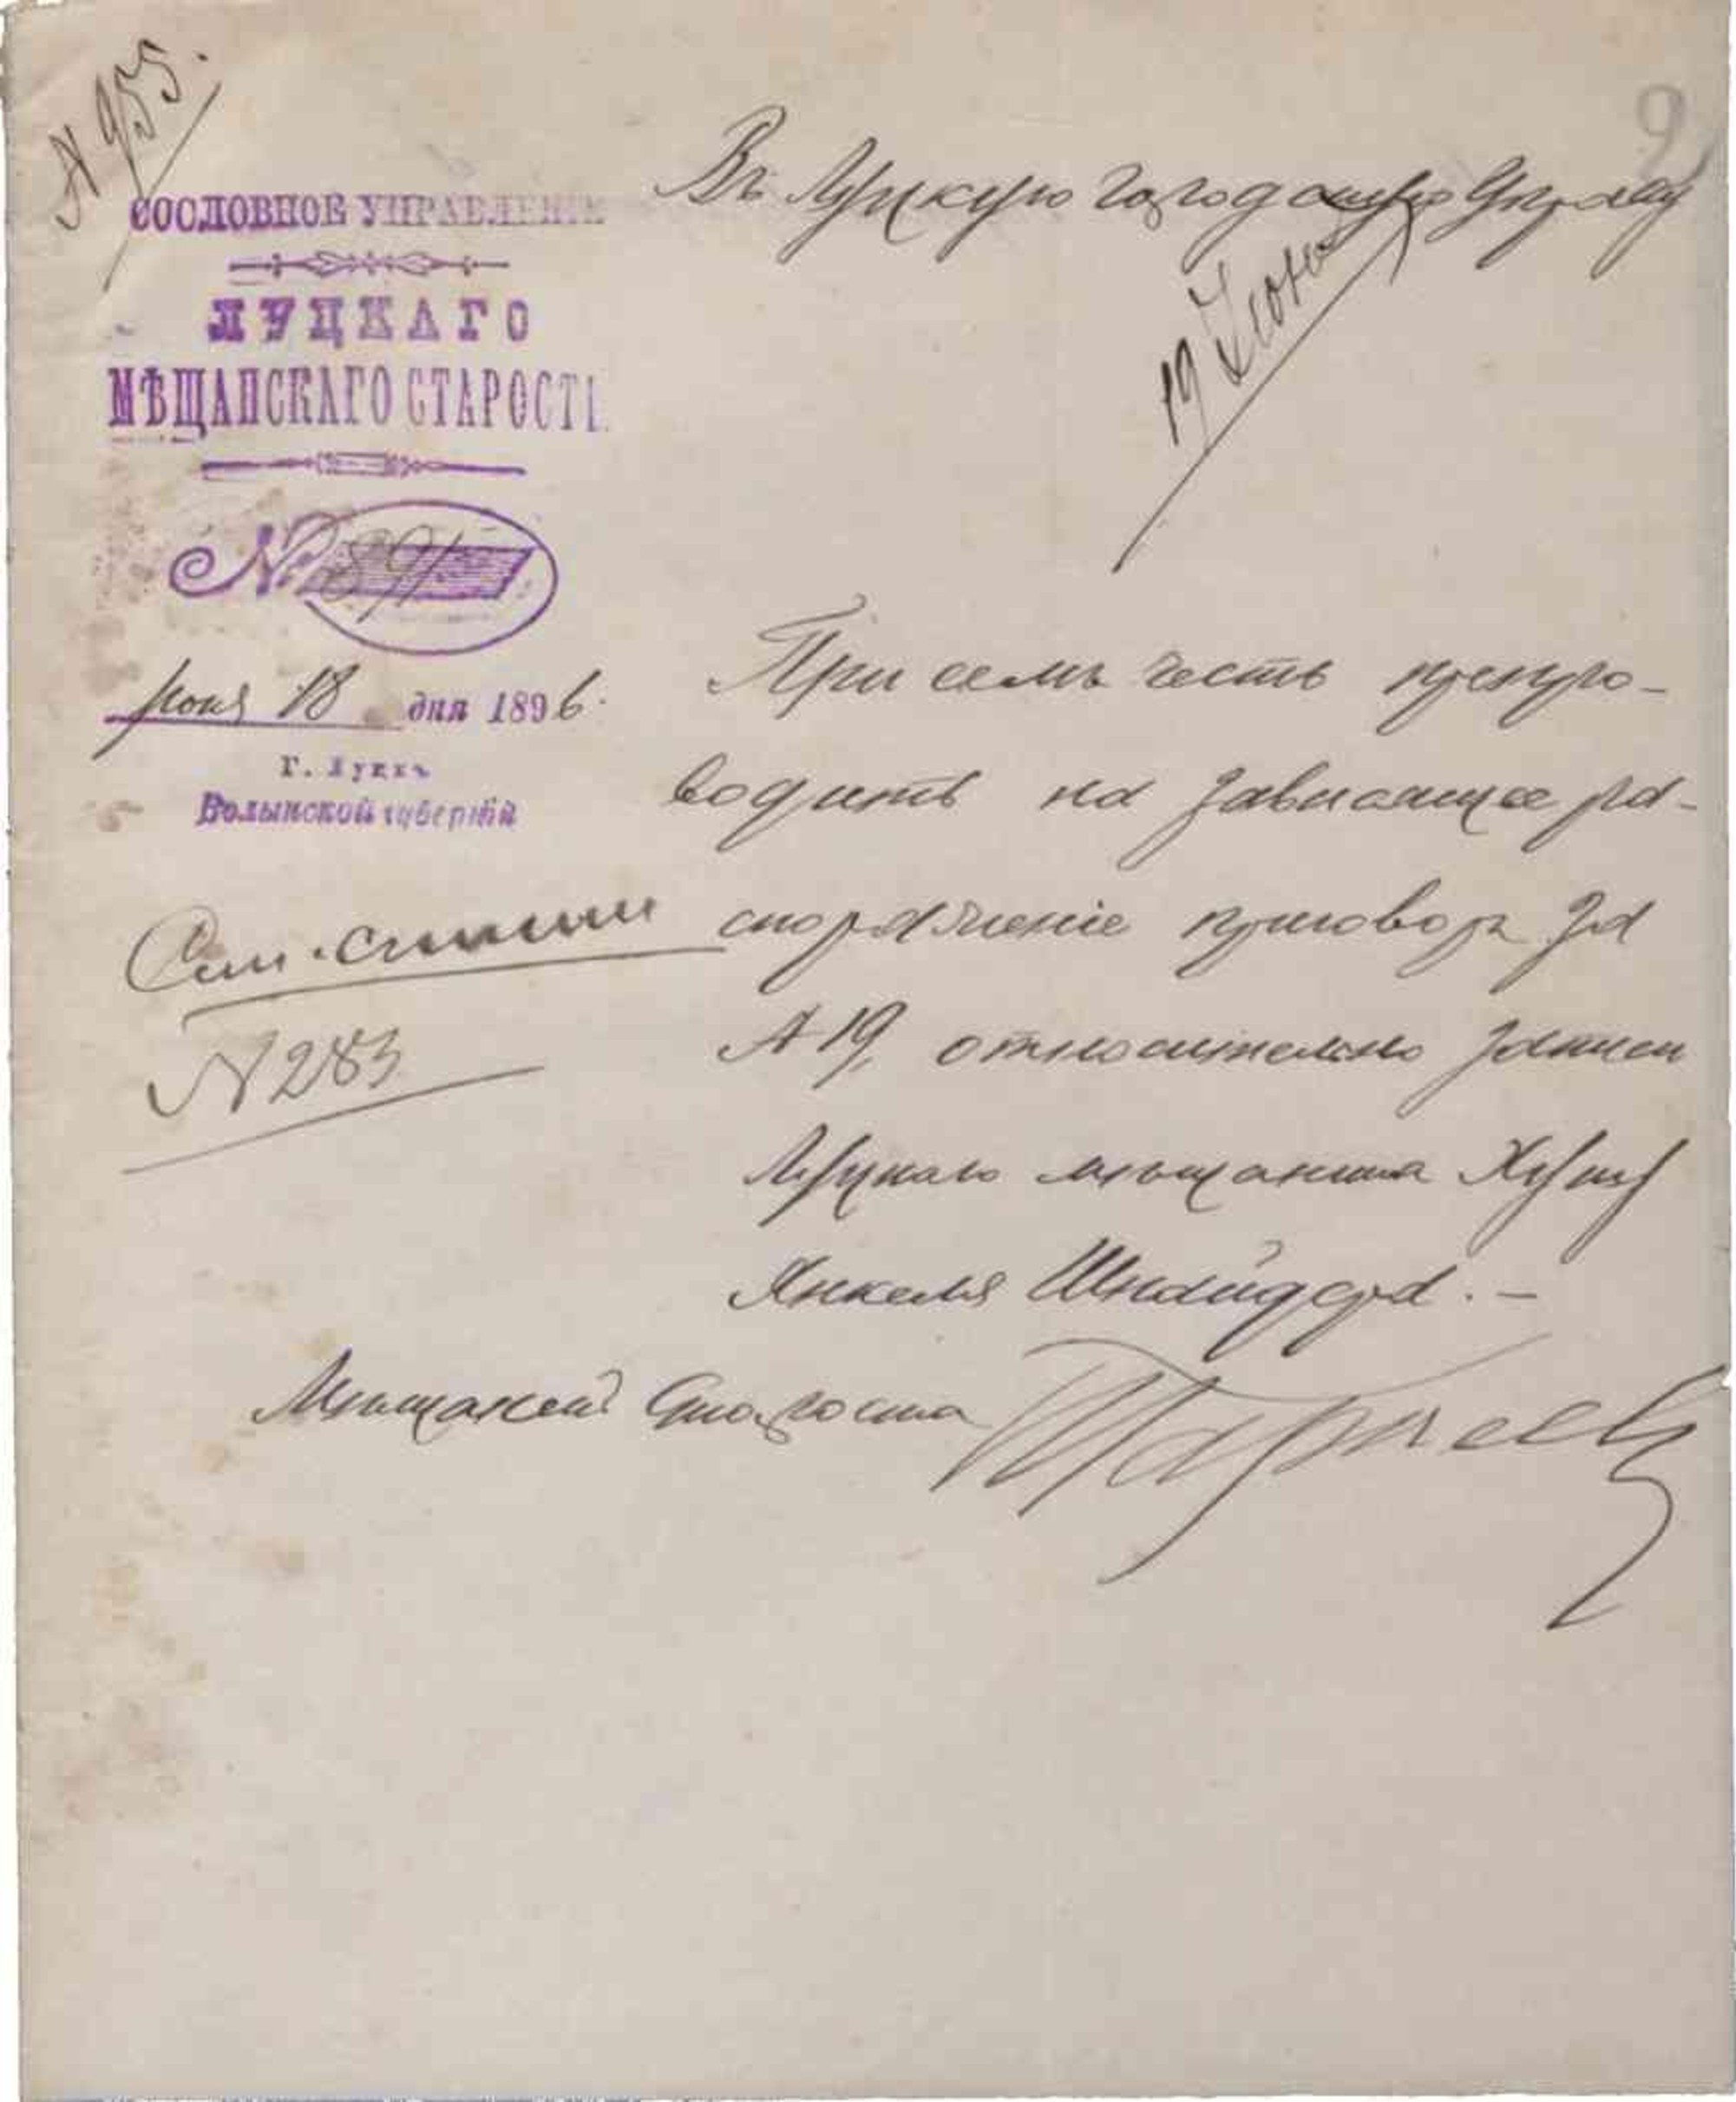 № 955.
9
СОСЛОВНОЕ УПРАВЛЕНІЕ
ЛУЦКАГО
МѢЩАНСКАГО СТАРОСТЫ
№ 891
Іюня 18 дня 1896.
Г. Луцкъ
Волынской губерніи
Въ Луцкую Городскую Управу
19 Іюня
При семъ честь препро-
водить на зависящее ра-
споряженіе приговоръ за
№ 19, относительно
Луцкаго мѣщанина
Янкеля Шнайдера. –
№ 283
Мѣщанскій Староста